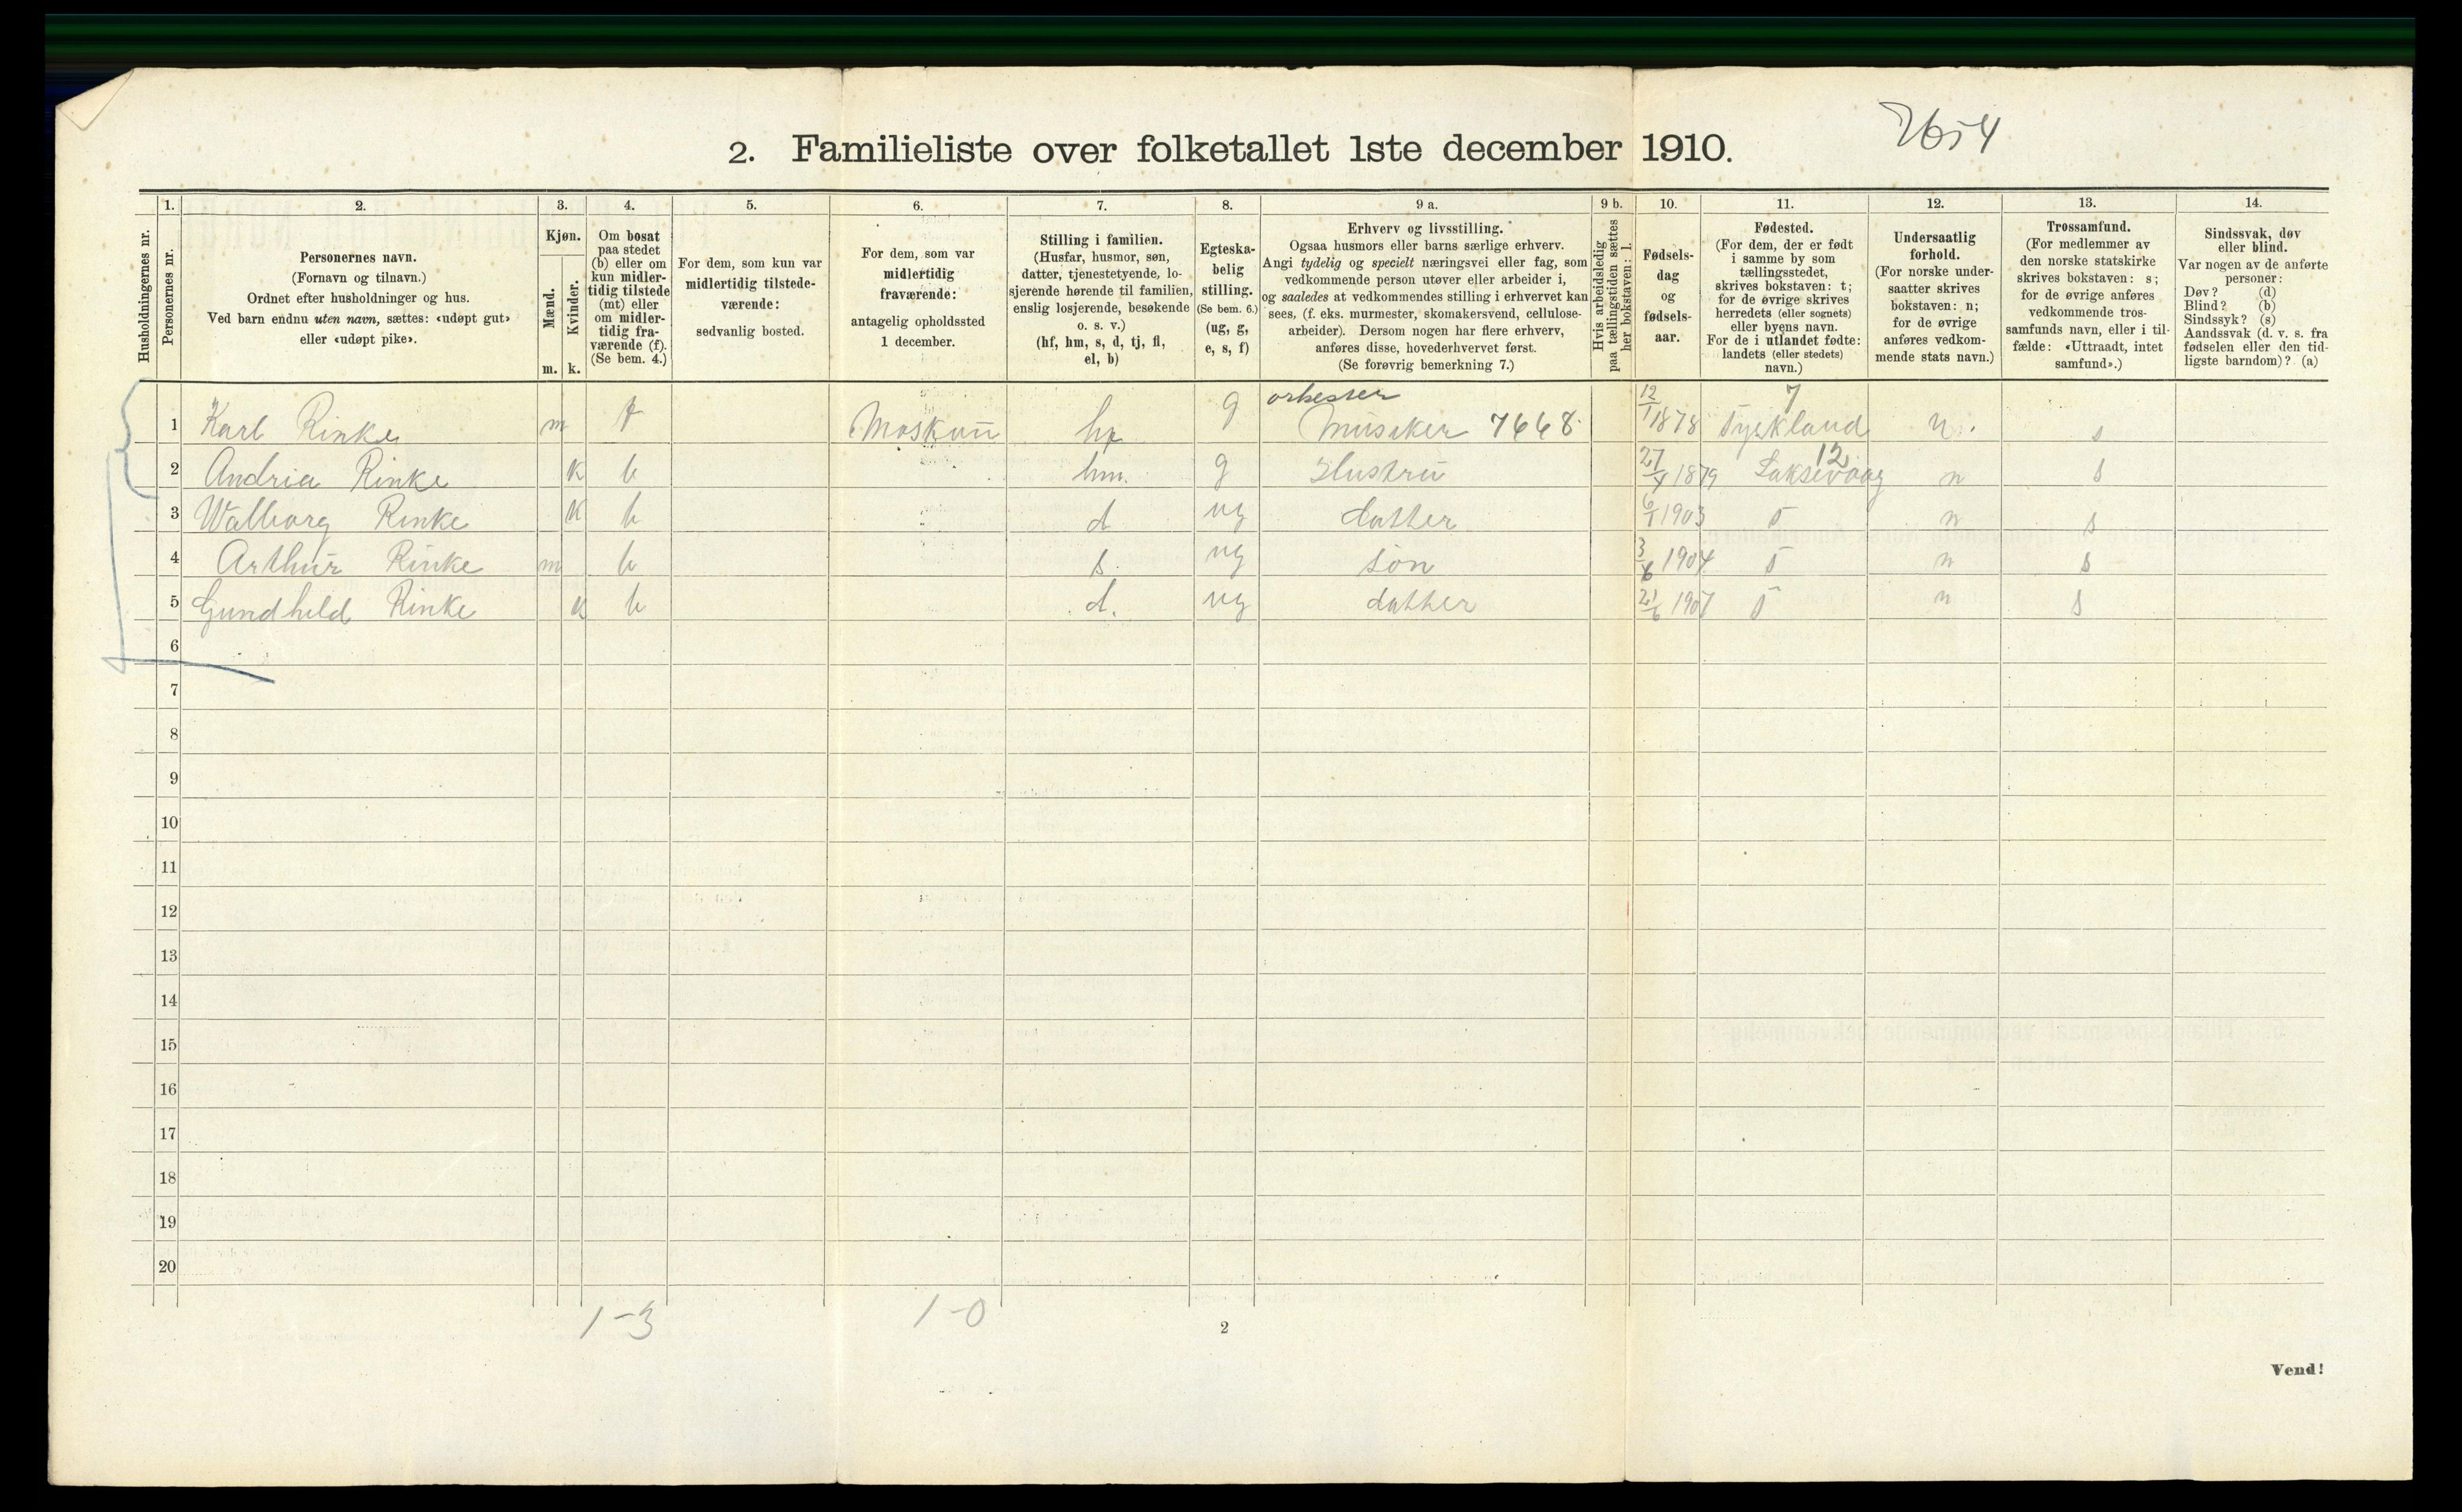 2654
2. Familieliste over folketallet 1ste december 1910.
Husholdningernes nr.
1. Personernes nr.
2. Personernes navn. (Fornavn og tilnavn.) Ordnet efter husholdninger og hus. Ved barn endnu uten navn, sættes: «udøpt gut» eller «udøpt pike».
3. Kjøn. Mænd. m. Kvinder. k.
4. Om bosat paa stedet (b) eller om kun midlertidig tilstede (mt) eller om midlertidig fraværende (f). (Se bem. 4.)
5. For dem, som kun var midlertidig tilstedeværende: sedvanlig bosted.
6. For dem, som var midlertidig fraværende: antagelig opholdssted 1 december.
7. Stilling i familien. (Husfar, husmor, søn, datter, tjenestetyende, losjerende hørende til familien, enslig losjerende, besøkende o. s. v.) (hf, hm, s, d, tj, fl, el, b)
8. Egteskabelig stilling. (Se bem. 6.) (ug, g, e, s, f)
9 a. Erhverv og livsstilling. Ogsaa husmors eller barns særlige erhverv. Angi tydelig og specielt næringsvei eller fag, som vedkommende person utøver eller arbeider i, og saaledes at vedkommendes stilling i erhvervet kan sees, (f. eks. murmester, skomakersvend, cellulosearbeider). Dersom nogen har flere erhverv, anføres disse, hovederhvervet først. (Se forøvrig bemerkning 7.)
9 b. Hvis arbeidsledig paa tællingstiden sættes her bokstaven: l.
10. Fødselsdag og fødselsaar.
11. Fødested. (For dem, der er født i samme by som tællingsstedet, skrives bokstaven: t; for de øvrige skrives herredets (eller sognets) eller byens navn. For de i utlandet fødte: landets (eller stedets) navn.)
12. Undersaatlig forhold. (For norske undersaatter skrives bokstaven: n; for de øvrige anføres vedkommende stats navn.)
13. Trossamfund. (For medlemmer av den norske statskirke skrives bokstaven: s; for de øvrige anføres vedkommende trossamfunds navn, eller i tilfælde: «Uttraadt, intet samfund».)
14. Sindssvak, døv eller blind. Var nogen av de anførte personer: Døv? (d) Blind? (b) Sindssyk? (s) Aandssvak (d. v. s. fra fødselen eller den tidligste barndom)? (a)
1 Karl Rinke m f Moskau hf g orkester Musiker 7668 12/1 1878 7 Tyskland n. s
2 Andria Rinke k b hm. g Hustru 27/4 1879 12 Laksevaag n s
3 Walborg Rinke k b d ug datter 6/1 1903 t n s
4 Arthur Rinke m b s. ug søn 3/6 1904 t n s
5 Gundhild Rinke k b d. ug datter 21/6 1907 t n s
6
7
8
9
10
11
12
13
14
15
16
17
18
19
20
1-3 1-0
2
Vend!